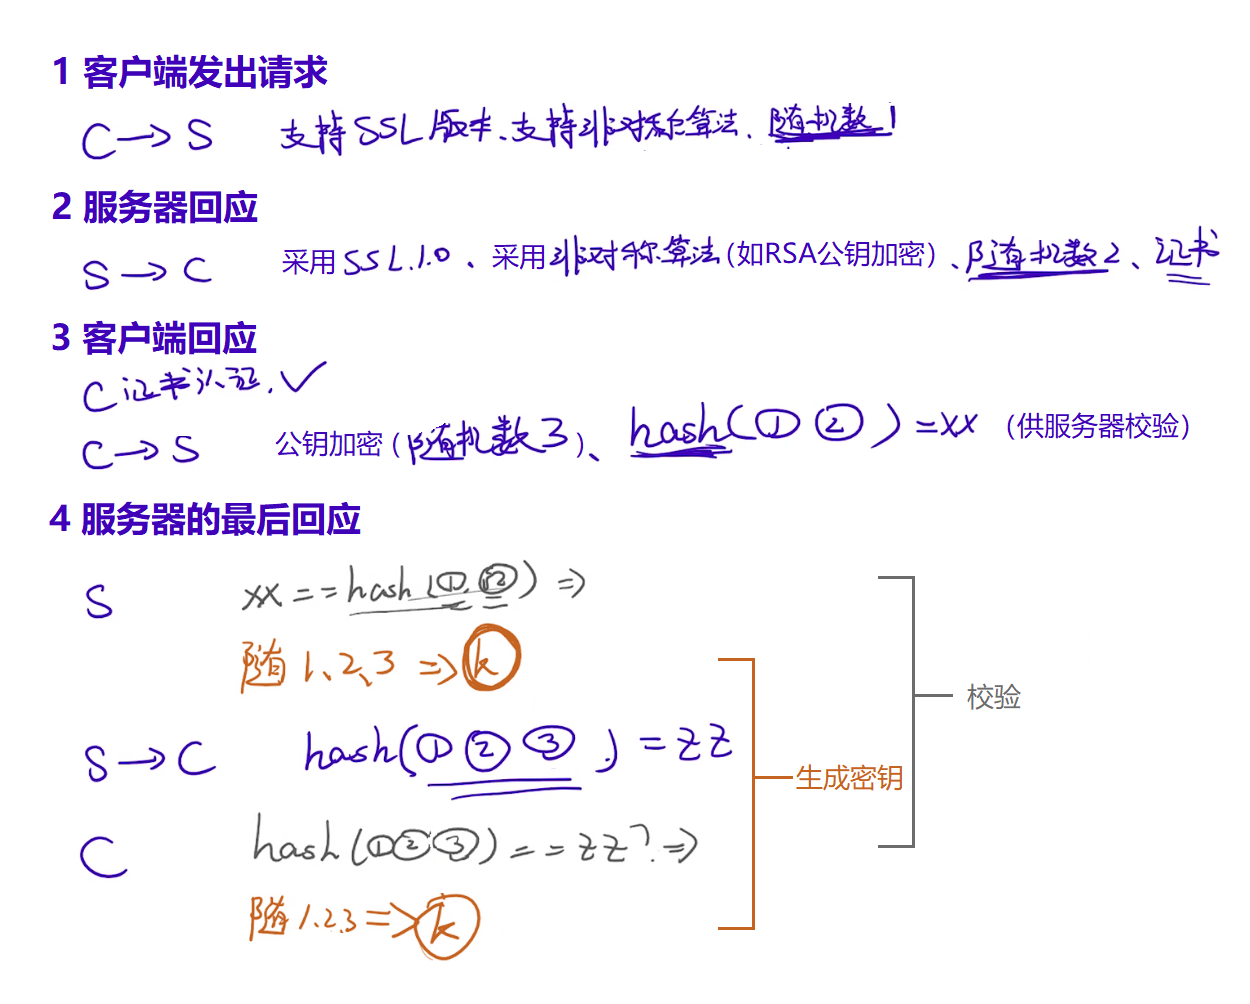 1 客户端发出请求
C→S 支持SSL版本、支持非对称算法、随机数1
2 服务器回应
S→C 采用SSL.1.0、采用非对称算法(如RSA公钥加密)、随机数2、证书
3 客户端回应
C证书认证.✓
C→S 公钥加密(随机数3)、hash(①②)=xx (供服务器校验)
4 服务器的最后回应
S xx==hash(①.②)⇒
随1、2、3⇒k
校验
S→C hash(①②③)=zz
生成密钥
C hash(①②③)==zz?.⇒
随1.2.3⇒k